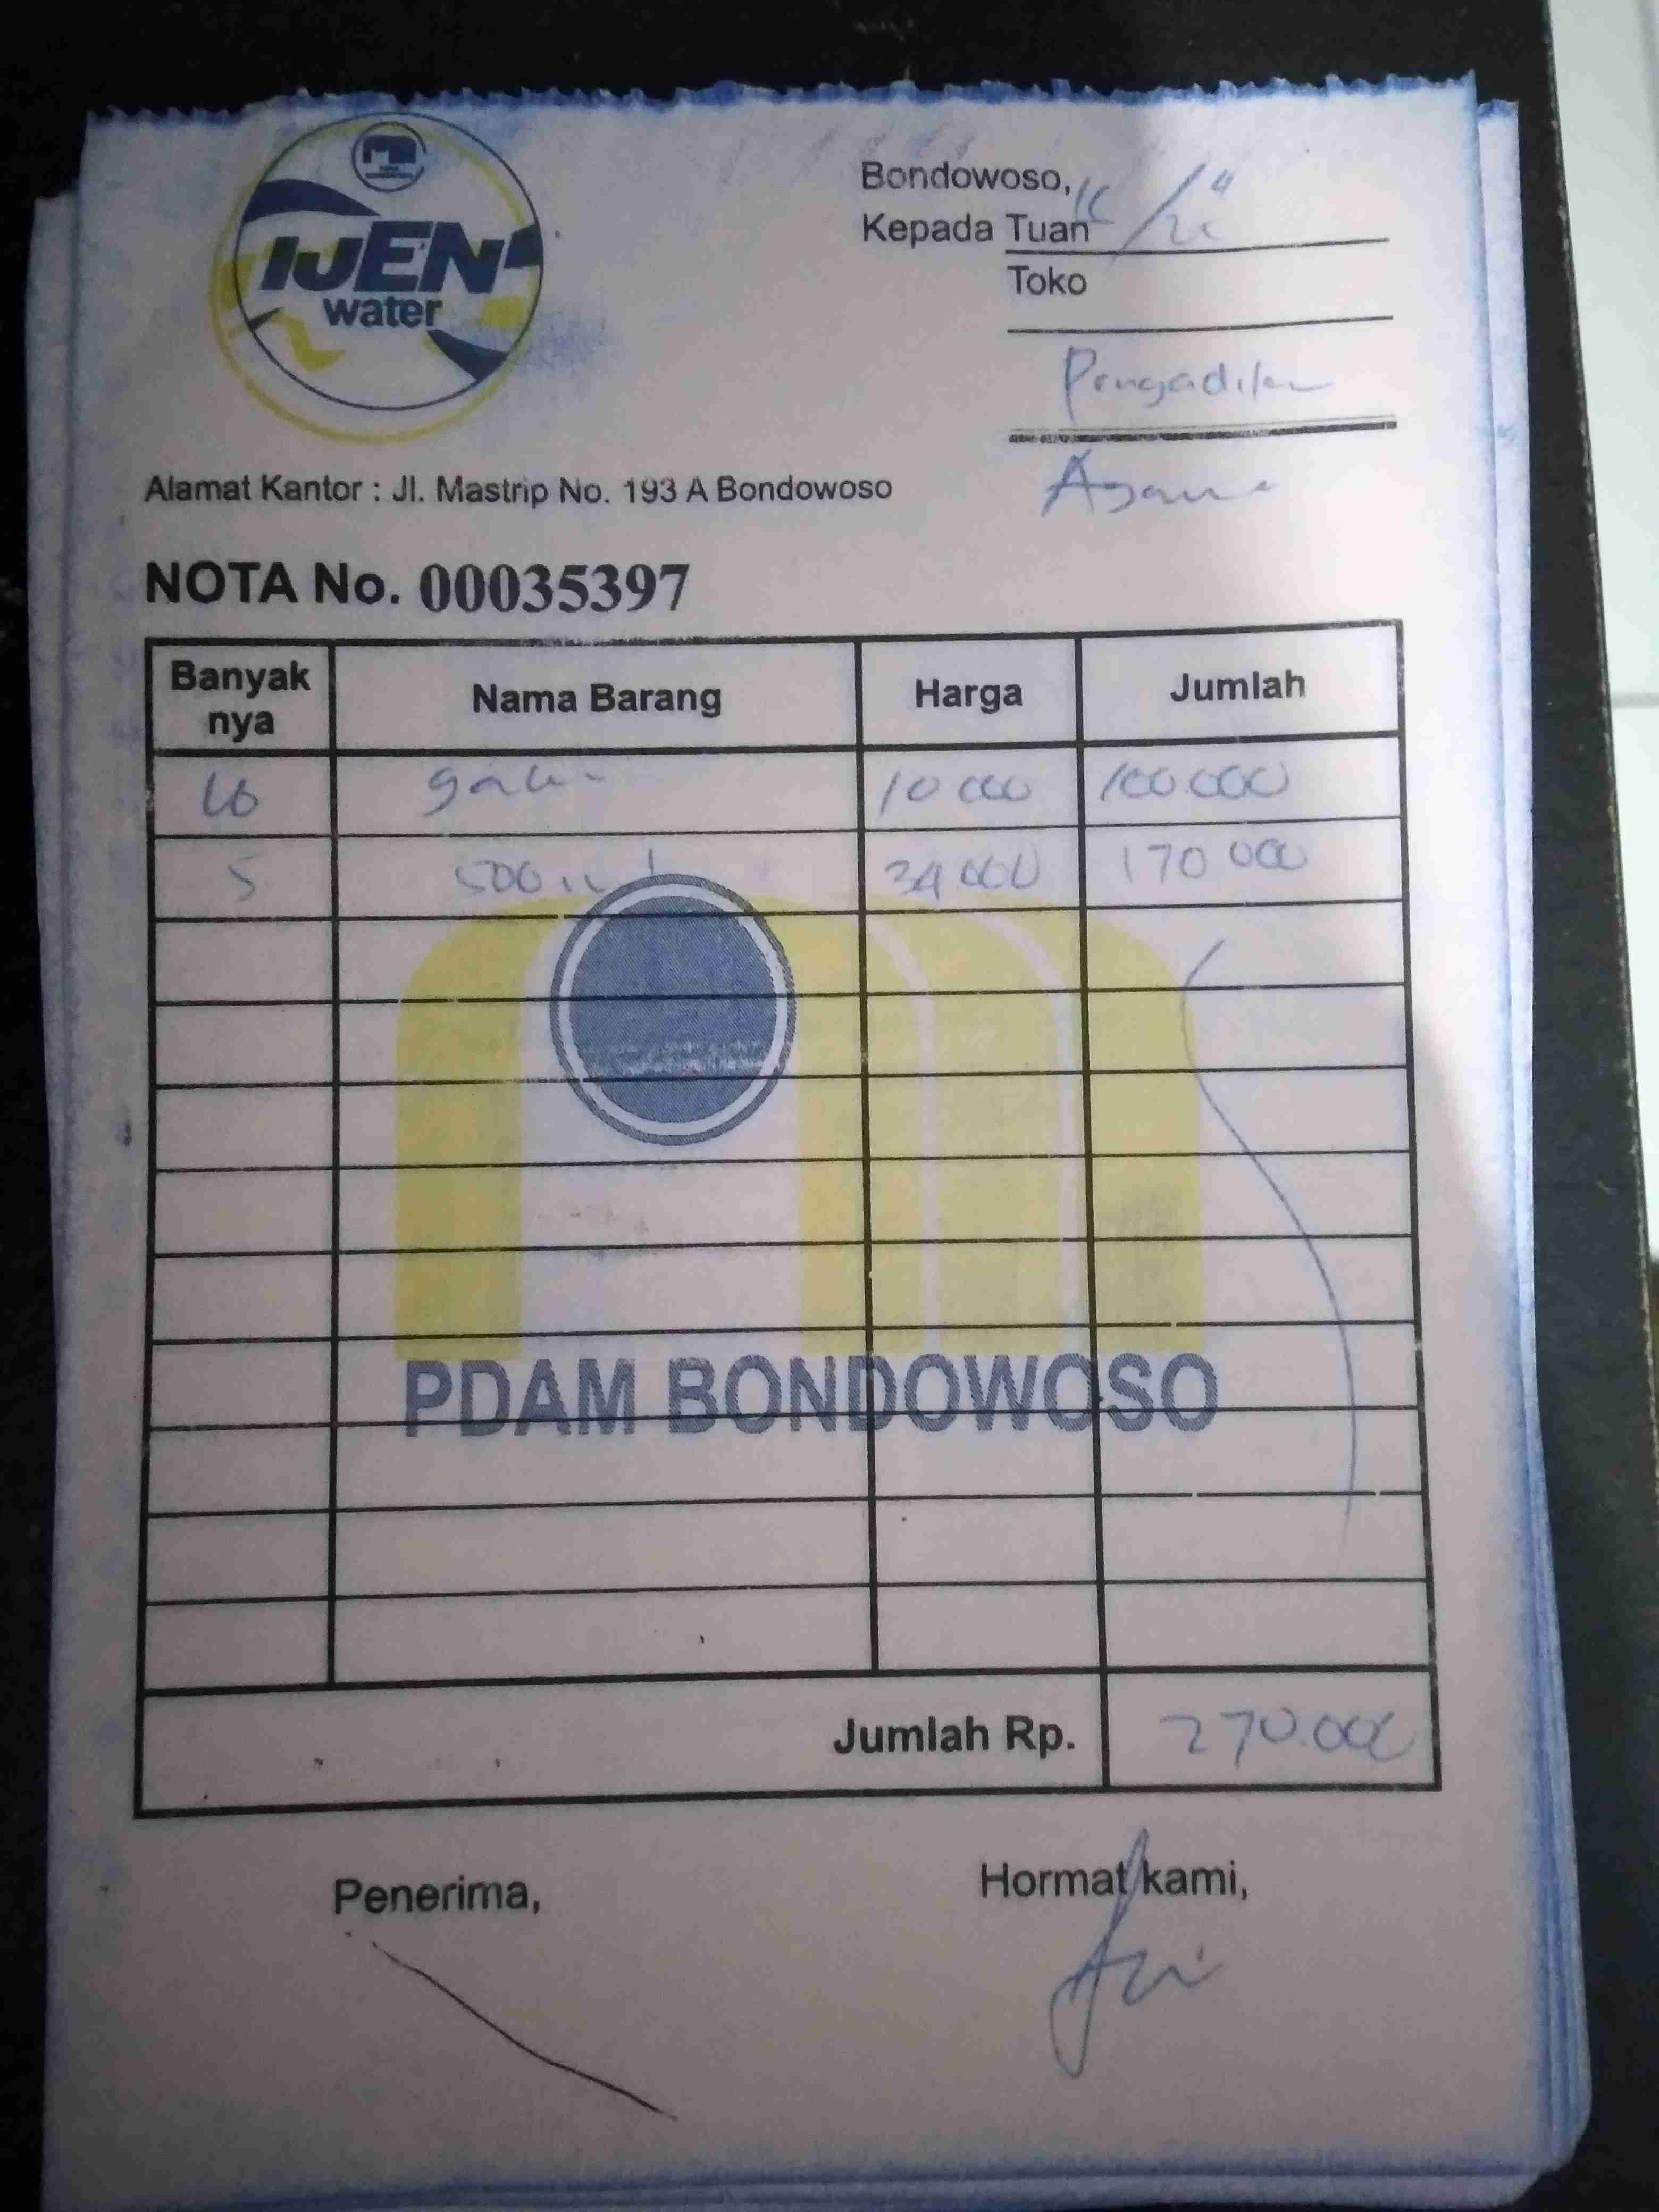 IJEN
water
Bondowoso,
Kepada Tuan
Toko
Pengadilan
Agama
Alamat Kantor : Jl. Mastrip No. 193 A Bondowoso
NOTA No. 00035397
Banyak nya Nama Barang Harga Jumlah
10 galon 10 000 100.000
5 500 ml 34 000 170 000
PDAM BONDOWOSO
Jumlah Rp. 270.000
Penerima, Hormat kami,